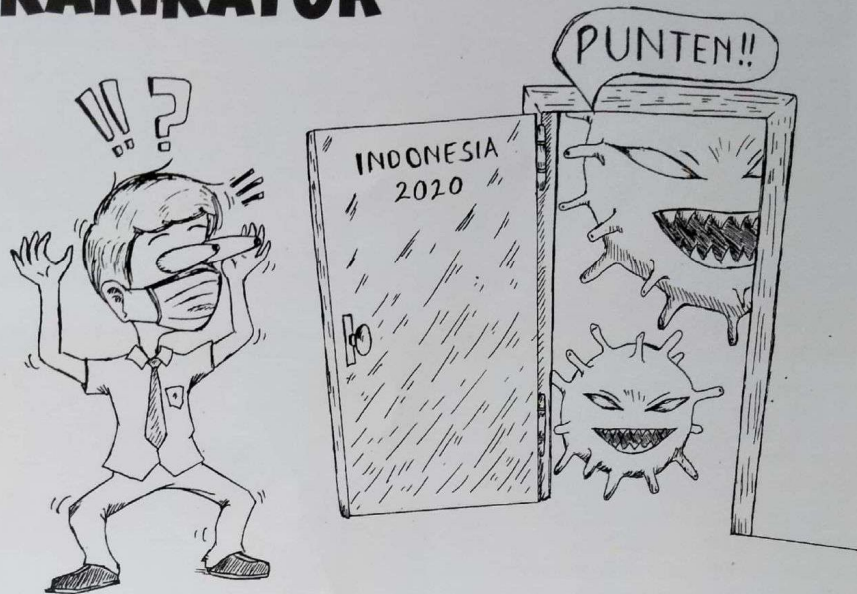 KARIKATUR
!! ?
PUNTEN!!
INDONESIA
2020